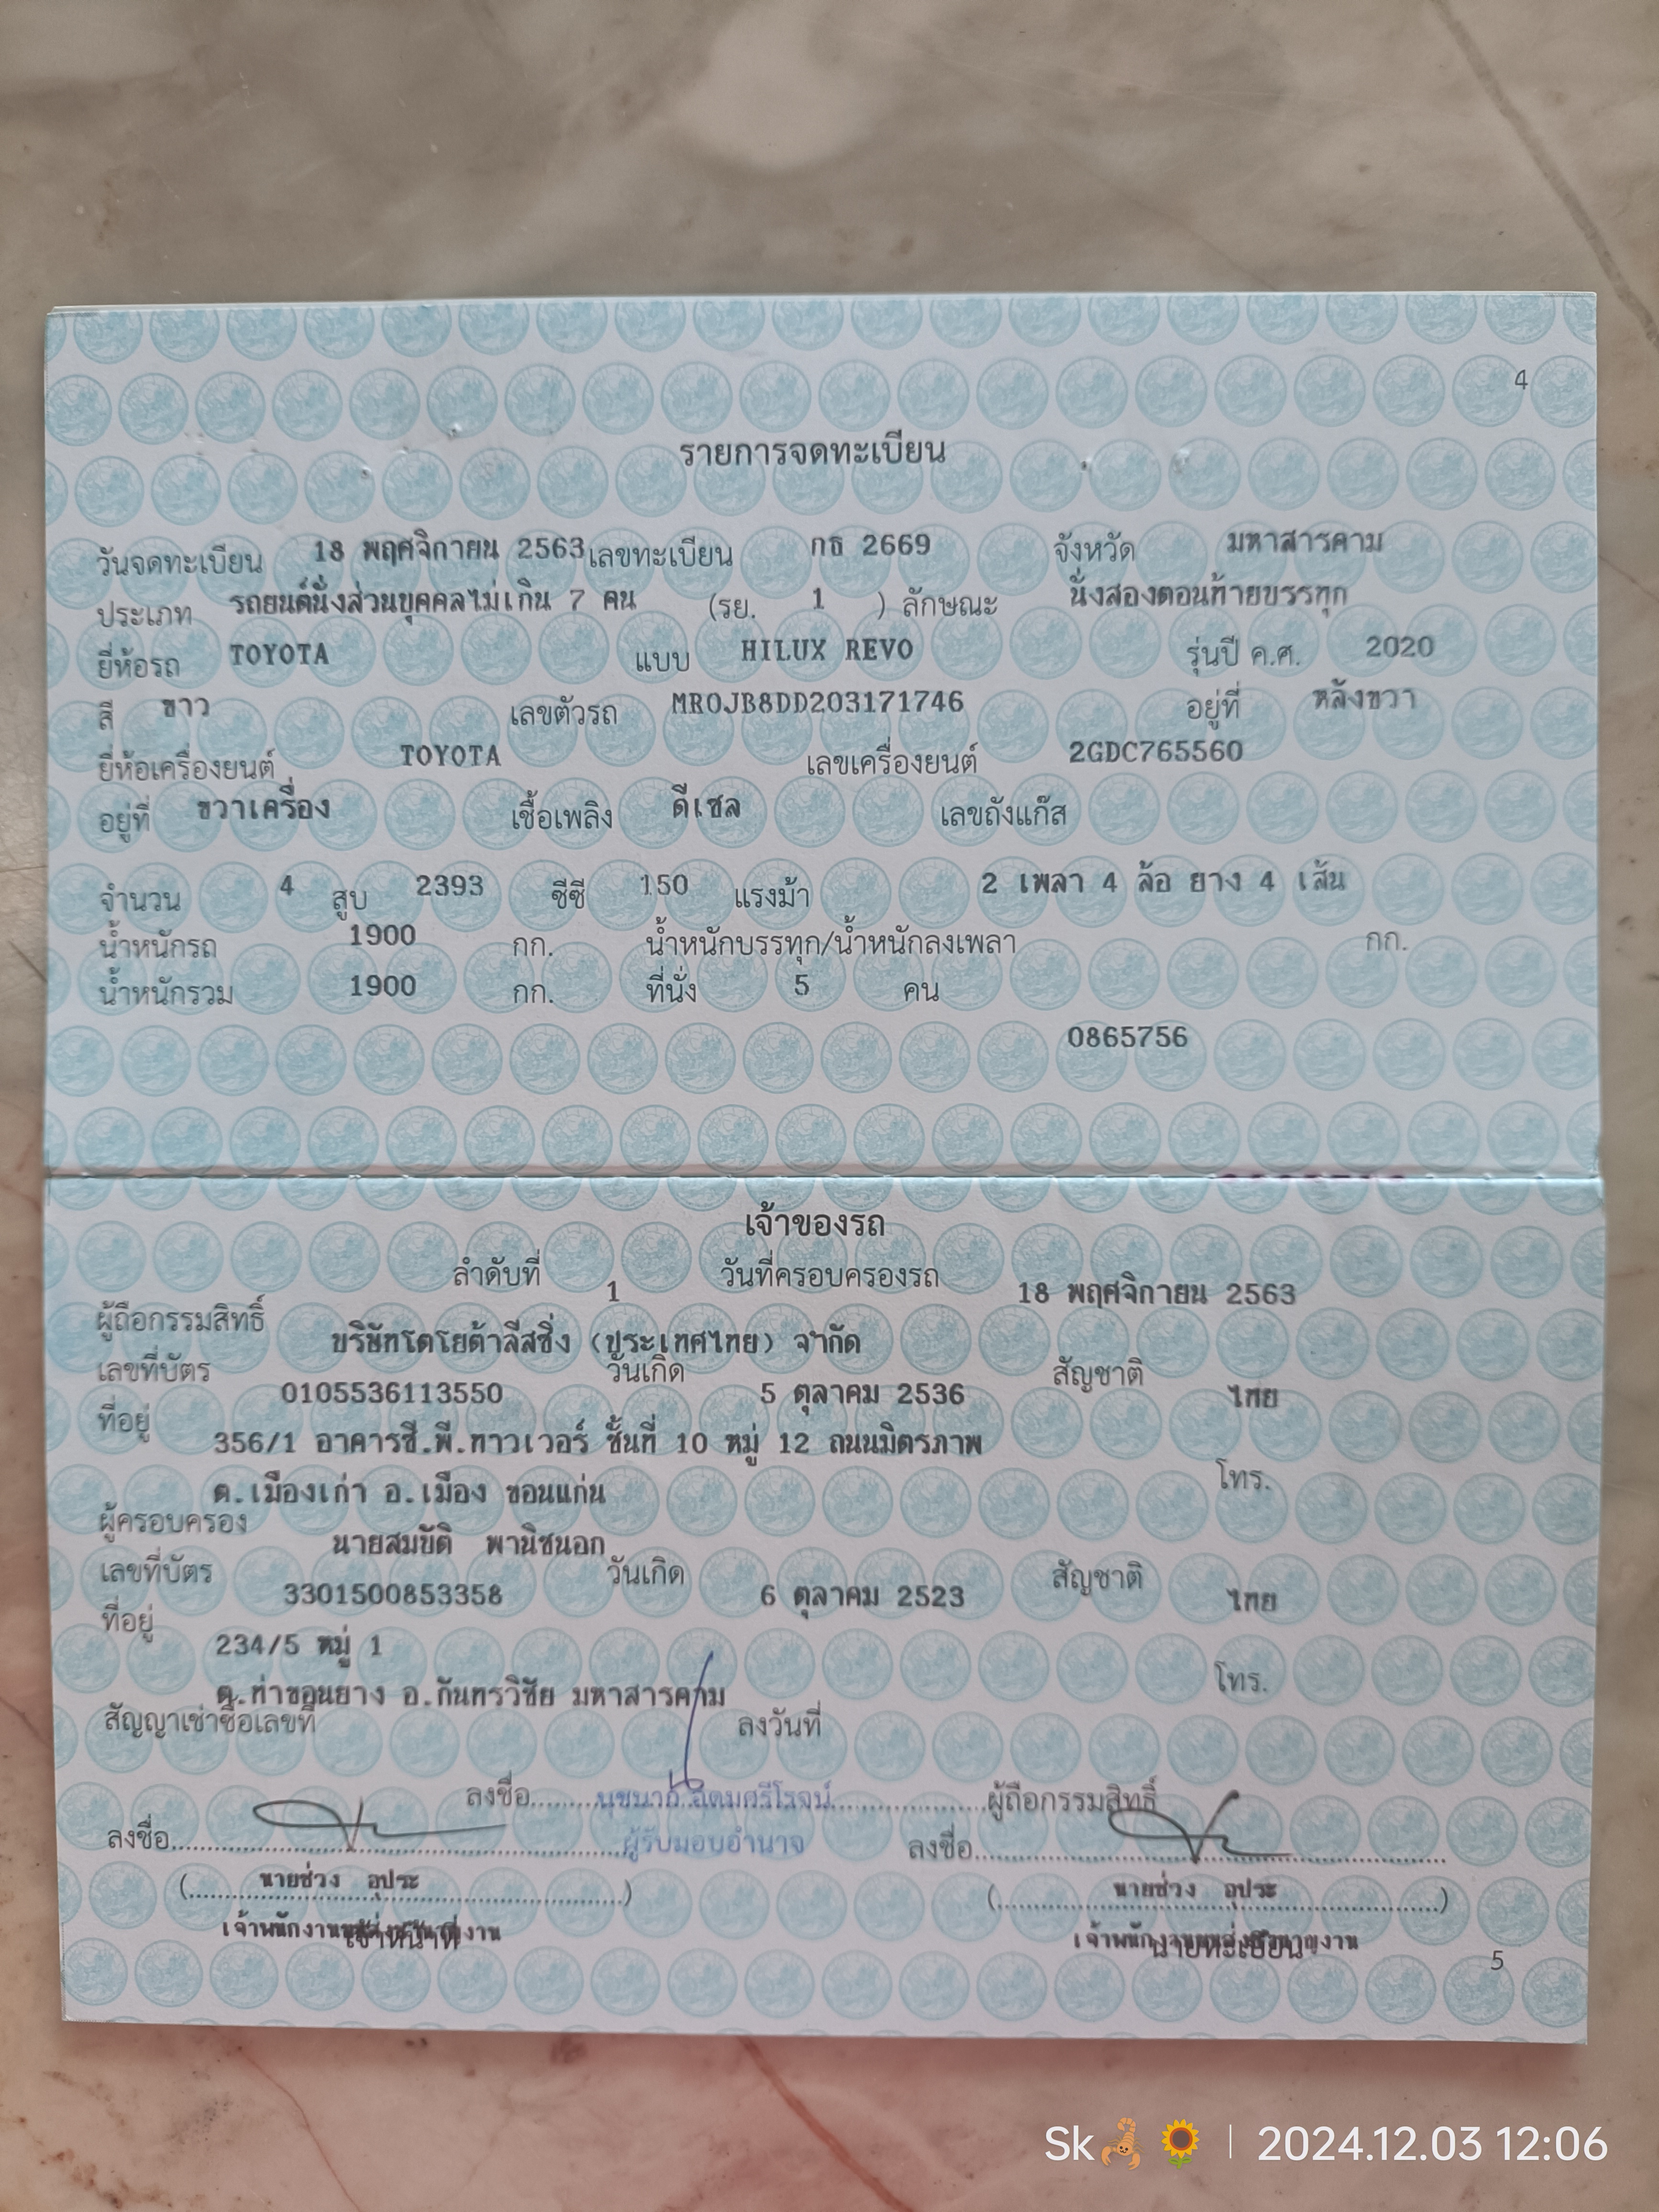 4
รายการจดทะเบียน
วันจดทะเบียน 18 พฤศจิกายน 2563 เลขทะเบียน กธ 2669 จังหวัด มหาสารคาม
ประเภท รถยนต์นั่งส่วนบุคคลไม่เกิน 7 คน (รย. 1 ) ลักษณะ นั่งสองตอนท้ายบรรทุก
ยี่ห้อรถ TOYOTA แบบ HILUX REVO รุ่นปี ค.ศ. 2020
สี ขาว เลขตัวรถ MR0JB8DD203171746 อยู่ที่ หลังขวา
ยี่ห้อเครื่องยนต์ TOYOTA เลขเครื่องยนต์ 2GDC765560
อยู่ที่ ขวาเครื่อง เชื้อเพลิง ดีเซล เลขถังแก๊ส
จำนวน 4 สูบ 2393 ซีซี 150 แรงม้า 2 เพลา 4 ล้อ ยาง 4 เส้น
น้ำหนักรถ 1900 กก. น้ำหนักบรรทุก/น้ำหนักลงเพลา กก.
น้ำหนักรวม 1900 กก. ที่นั่ง 5 คน
0865756
เจ้าของรถ
ลำดับที่ 1 วันที่ครอบครองรถ 18 พฤศจิกายน 2563
ผู้ถือกรรมสิทธิ์ บริษัทโตโยต้าลีสซิ่ง (ประเทศไทย) จำกัด
เลขที่บัตร 0105536113550 วันเกิด 5 ตุลาคม 2536 สัญชาติ ไทย
ที่อยู่ 356/1 อาคารซี.พี.ทาวเวอร์ ชั้นที่ 10 หมู่ 12 ถนนมิตรภาพ
ต.เมืองเก่า อ.เมือง ขอนแก่น โทร.
ผู้ครอบครอง นายสมบัติ พานิชนอก
เลขที่บัตร 3301500853358 วันเกิด 6 ตุลาคม 2523 สัญชาติ ไทย
ที่อยู่ 234/5 หมู่ 1
ต.ท่าขอนยาง อ.กันทรวิชัย มหาสารคาม โทร.
สัญญาเช่าซื้อเลขที่ ลงวันที่
ลงชื่อ ผู้ถือกรรมสิทธิ์
ผู้รับมอบอำนาจ
ลงชื่อ ลงชื่อ
(นายช่วง อุประ) (นายช่วง อุประ)
เจ้าหน้าที่ นายทะเบียน
5
Sk🦂🌻 | 2024.12.03 12:06